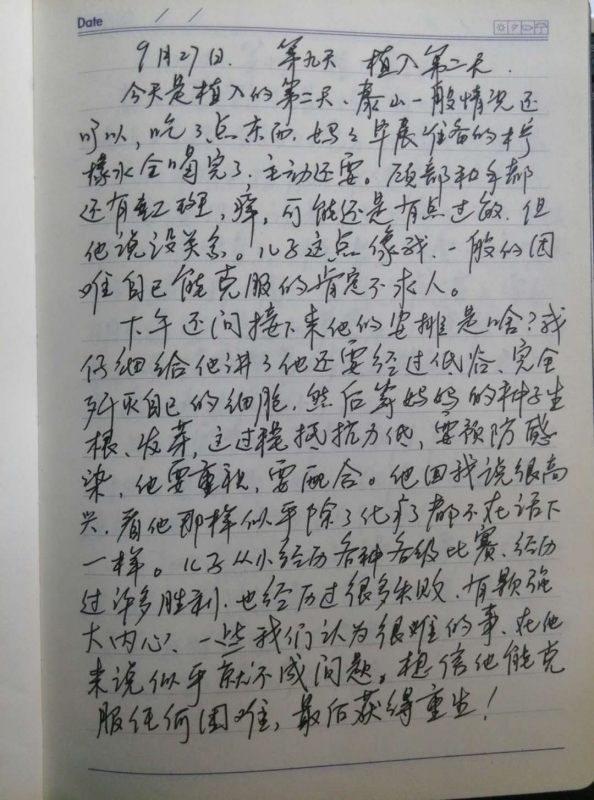 Date / /
9月27日. 第九天 植入第二天.
今天是植入的第二天、泰山一般情况还
可以，吃了点东西. 妈妈早晨准备的柠
檬水全喝完了. 主动还要。颈部和手都
还有红斑, 痒, 可能还是有点过敏. 但
他说没关系。儿子这点像我. 一般的困
难自己能克服的肯定不求人。
下午还问接下来他的安排是啥？我
仔细给他讲了他还要经过低谷、完全
歼灭自己的细胞. 然后等妈妈的种子生
根、发芽, 这过程抵抗力低, 要预防感
染, 他要重视, 要配合。他回我说很高
兴. 看他那样似乎除了化疗都不在话下
一样。儿子从小经历各种各级比赛. 经历
过许多胜利. 也经历过很多失败. 有颗强
大内心、一些我们认为很难的事. 在他
来说似乎就不成问题。相信他能克
服任何困难, 最后获得重生！